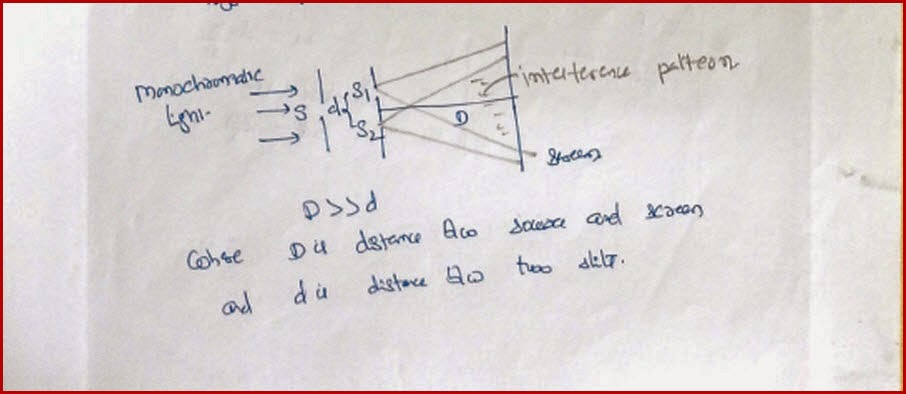 Monochromatic
light.
S
d
S1
S2
D
interference pattern
Screen
D>>d
Cohse D is distance b/w source and screen
and d is distance b/w two slits.